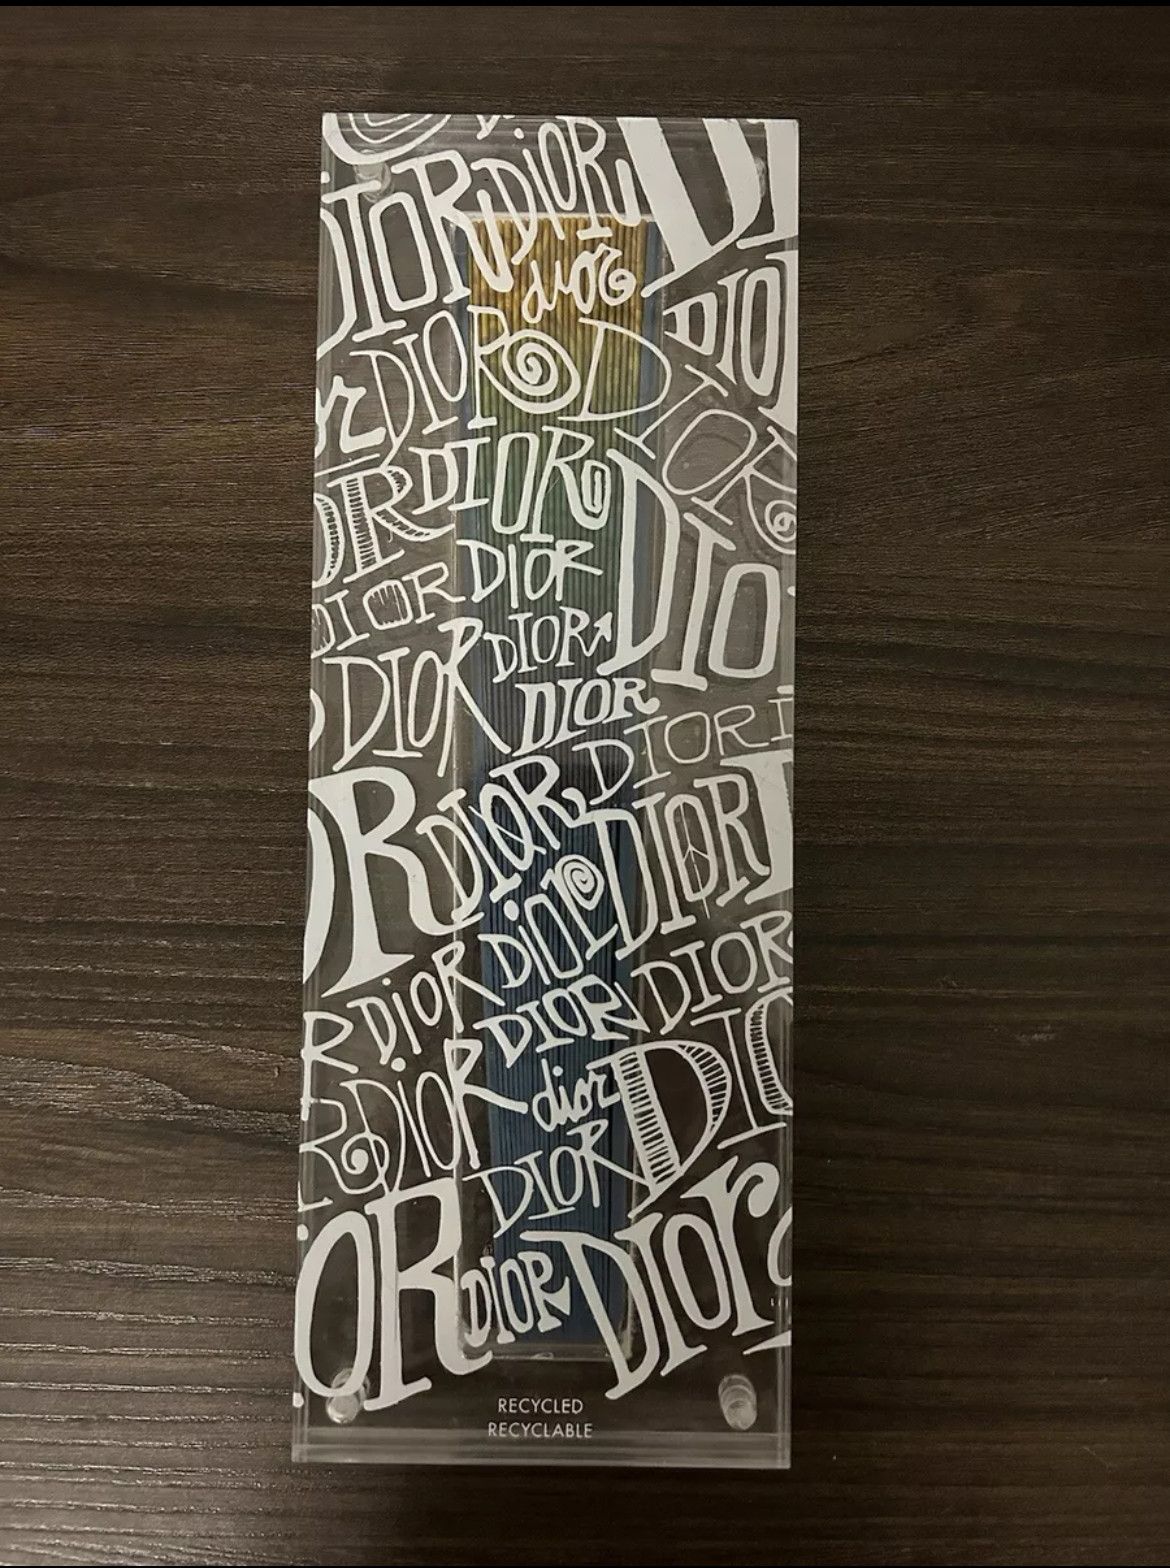 DiOR
DIOR DIOR
Dior
DIOR D
DIO
r DIOR
DIOR
OR DIOR
DIO
DIOR DIOR
DIOR DIOR
DIOR
DIOR
R DIOR DIOR
DIOR
DiOR
DiOR DIOR
DIOR
R DiOR
DIO
DIOR
dior
DIOR
OR DIOR Dior
RECYCLED
RECYCLABLE